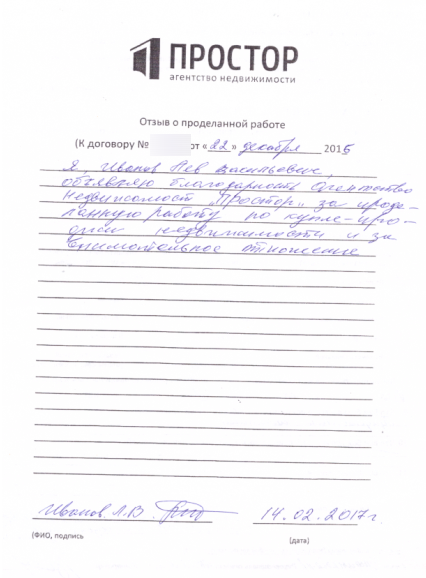 ПРОСТОР
агентство недвижимости
Отзыв о проделанной работе
(К договору № от «22» декабря 2016
Я, Иванов Лев Васильевич,
объявляю благодарность Агентство
недвижимост „Простор„ за проде-
ланную работу по купле-про-
дажи недвижимости и за
внимательное отношение
Иванов Л.В
14.02.2017г
(ФИО, подпись
(дата)